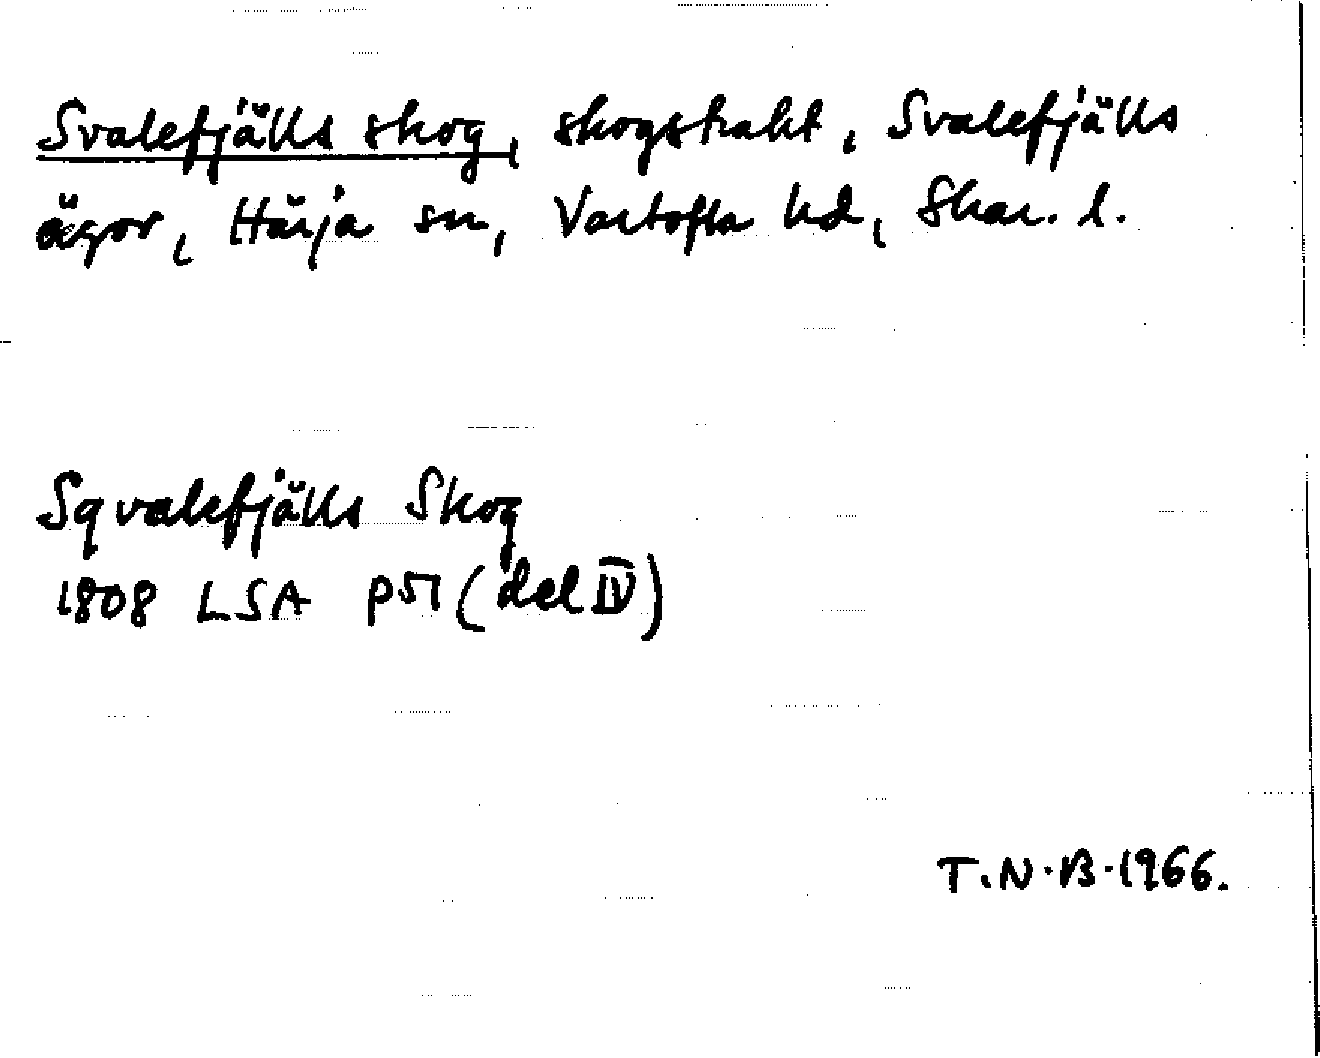 Svalefjälls skog, skogstrakt, Svalefjälls
ägor, Härja sn, Vartofta hd, Skar. l.
Sqvalefjälls Skog
1808 LSA P51 (del IV)
T.N.B. 1966.